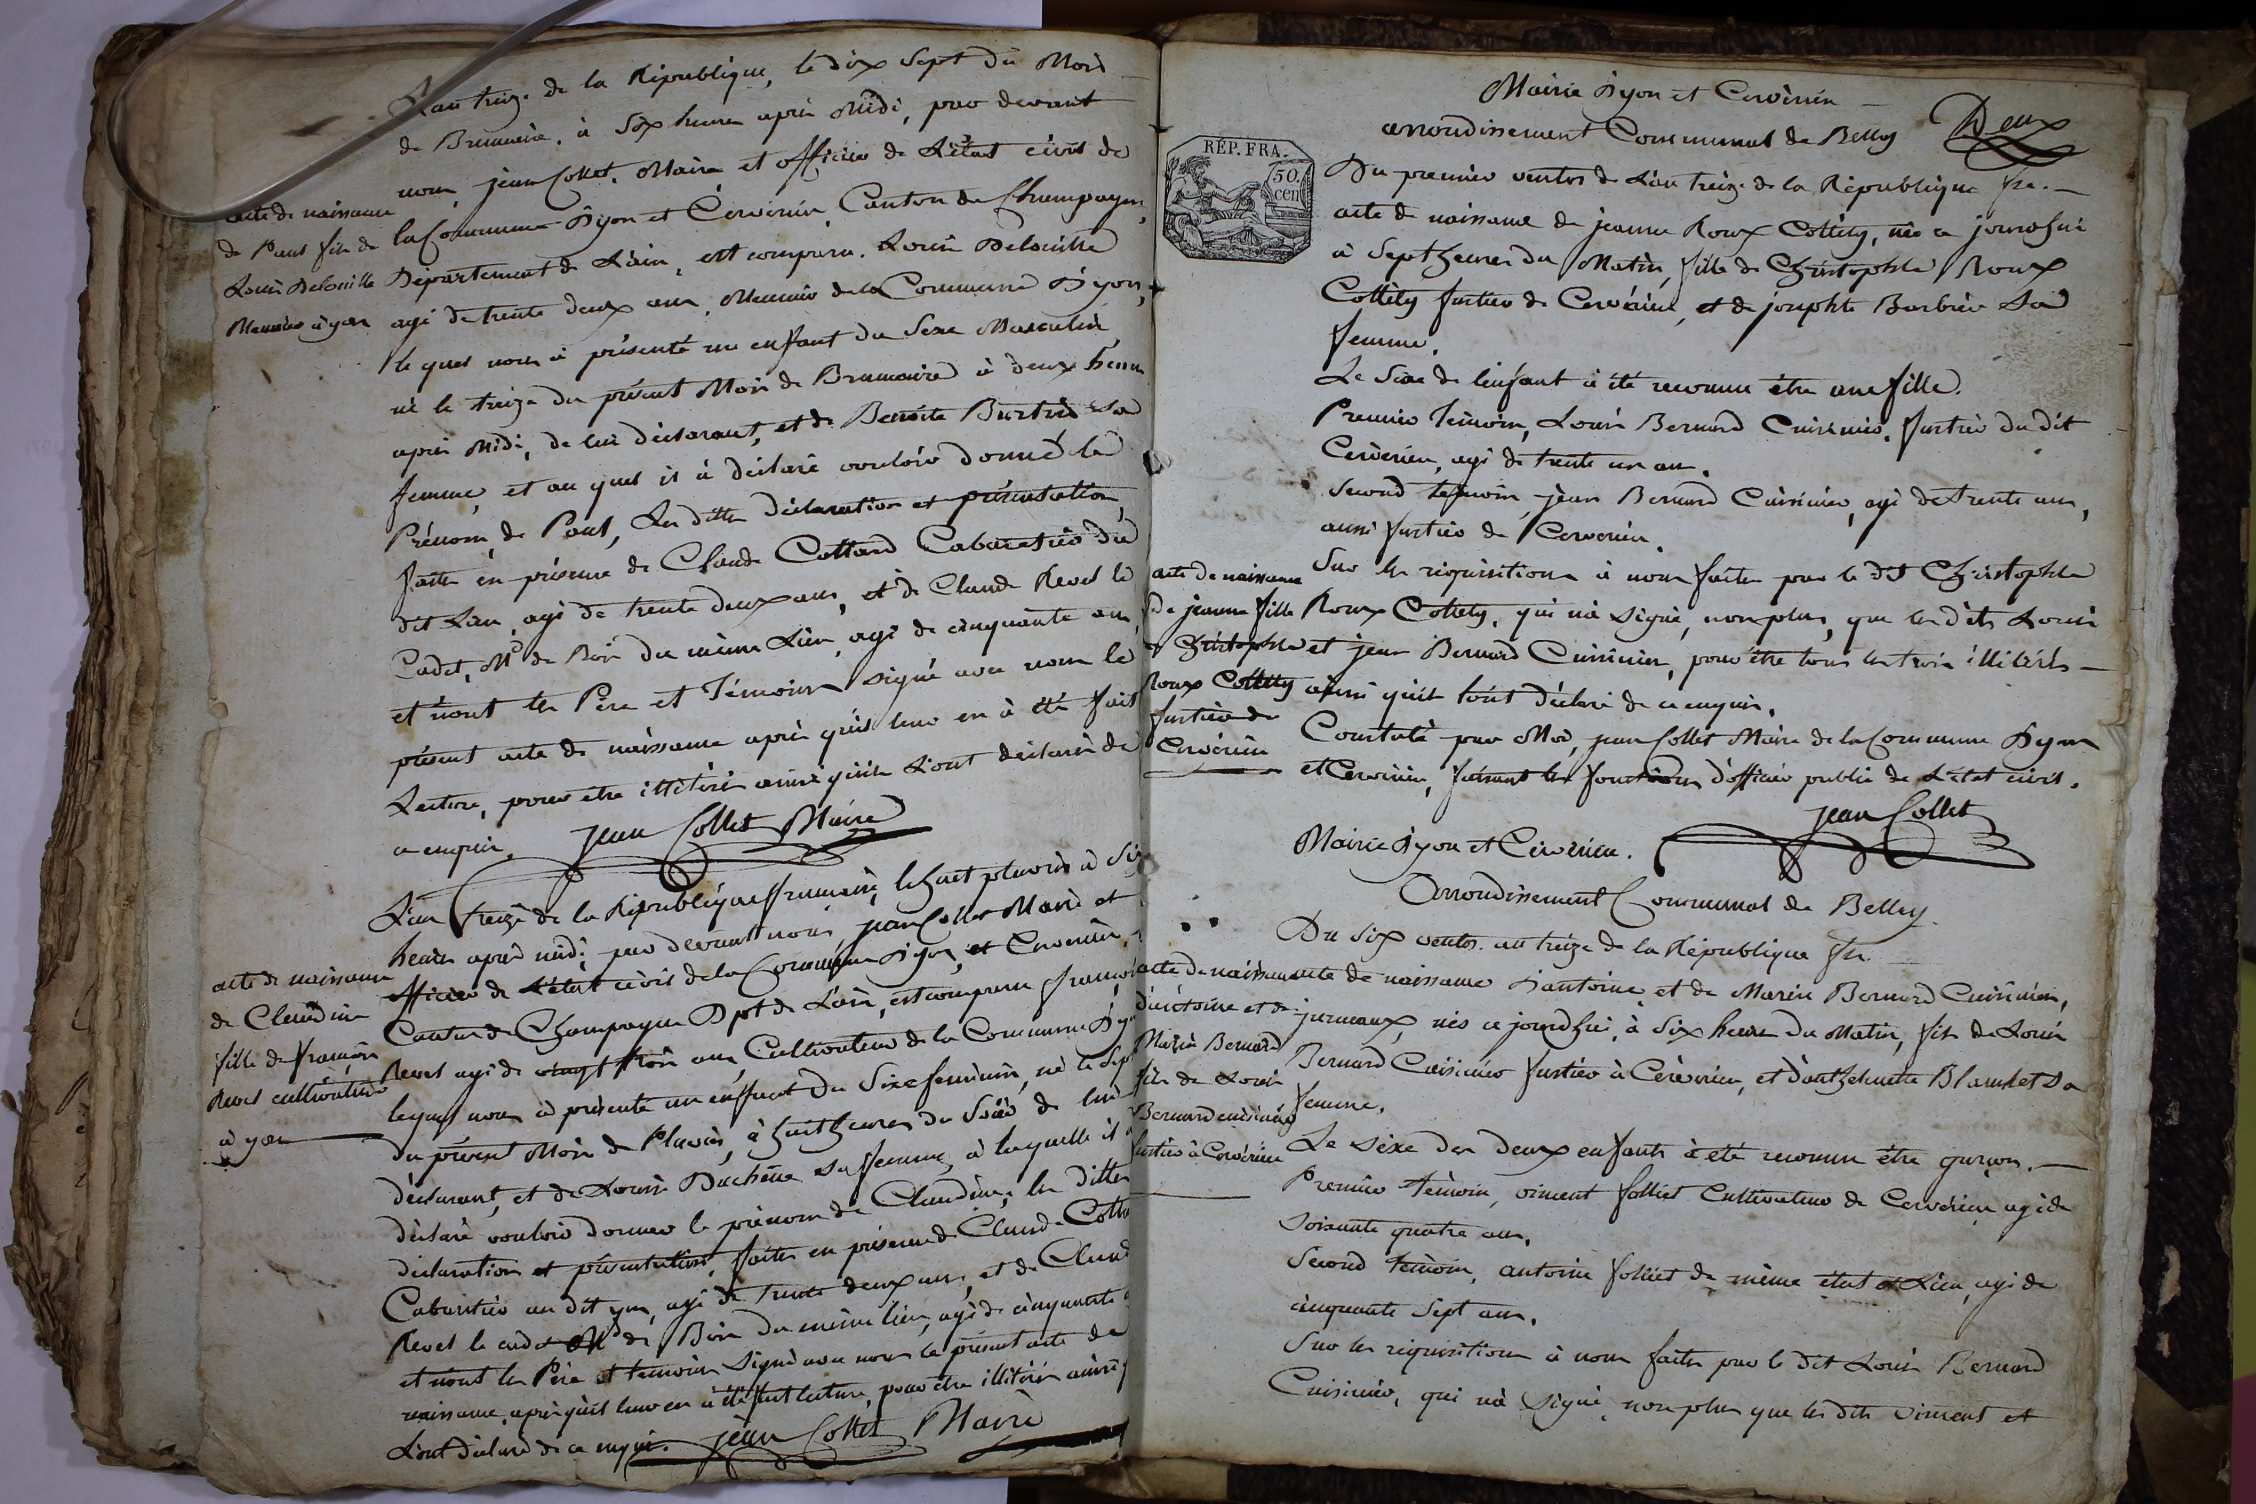 L'an treize de la République, le dix Sept du Mois
de Brumaire, à Six heure après Midi, par devant
nous, jean Collet, Maire et officier de L'état civil de
la Commune d'yon et Cerverieu, Canton de Champagne,
Département de L'ain, est comparu, Louis Delouille
agé de trente deux ans, Meunier de la Commune d'yon,
le quel nous à présenté un enfant du Sexe Masculin
né le treize du présent Mois de Brumaire à deux heure
après Midi, de lui déclarant, et de Benoite Burtin Sa
femme, et au quel il à déclaré vouloir donné le
Prénom, de Paul, Les dittes déclaration et présentation
faite en présence de Claude Cottard Cabaretier du
dit Lieu, agé de trente deux ans, et de Claude Revel le
Cadet, Md de Bois du même Lieu, agé de cinquante ans,
et n'ont les Père et Témoins signé avec nous le
présent acte de naissance après qu'il leur en à été fait
Lecture, pour être illitéré ainsi qu'ils L'ont déclaré de
ce enquis. jean Collet Maire
acte de naissance
de Paul fils de
Louis Delouille
Meunier à yon
L'an treize de la République francaise, le huit pluviose à Six
heure après midi, par devant nous, jean Collet Maire et
officier de L'état civil de la Commune d'yon, et Cerverieu
Canton de Champagne Dpt de L'ain, est comparu françois
Revel agé de vingt trois ans, Cultivateur de la Commune d'yon
lequel nous à présenté un enfant du Sexe feminin, né le Sept
du présent Mois de Pluviose, à huit heures du Soir de lui
déclarant, et de Louise Duchêne sa femme, à laquelle il a
déclaré vouloir donner le prénom de Claudine, les dittes
déclaration et présentation, faite en présence de Claude Cotta
Cabaretier au dit yon, agé de trente deux ans, et de Claude
Revel le cadet Md de Bois du même lieu, agé de cinquante
et n'ont les Père et temoins signé avec nous le présent acte de
naissance, après qu'il leur en à été fait lecture, pour être illitéré ainsi q
L'ont déclaré de ce enquis. jean Collet Maire
acte de naissance
de Claudine
fille de françois
Revel cultivateur
à yon
Mairie d'yon et Cerverieu
arrondissement Communal de Belley
Deux
RÉP. FRA.
50.
cen
Du premier ventos de L'an treize de la République fse.
acte de naissance de jeanne Roux Collety, née ce jourd'hui
à Sept heures du Matin, fille de Christophle Roux
Collety fustier de Cerverieu, et de josephte Barbier Sa
femme.
Le Sexe de l'enfant à été reconnu être une fille.
Premier Témoin, Louis Bernard Cuisinier, fustier du dit
Cerverieu, agé de trente un ans.
Second témoin, jean Bernard Cuisinier, agé de trente ans,
aussi fustier de Cerverieu.
Sur les réquisitions à nous faites par le dit Christophle
Roux Collety, qui n'à signé, non plus, que les dits Louis
et jean Bernard Cuisinier, pour être tous les trois illitérés
ainsi qu'il l'ont déclaré de ce enquis.
Constaté par Moi, jean Collet Maire de la Commune d'yon
et Cerverieu, faisant les fonctions d'officier public de L'état civil.
jean Collet
acte de naissance
de jeanne fille
d Christophle
Roux Collety
fustier de
Cerverieu
Mairie d'yon et Cerverieu.
Arrondissement Communal de Belley
Du Six ventos. an treize de la République fse.
acte de naissance d'antoine et de Marin Bernard Cuisinier,
jumeaux, nés ce jourd'hui, à Six heure du Matin, fils de Louis
Bernard Cuisinier fustier à Cerverieu, et d'anthelmette Blanchet Sa
femme.
Le sexe des deux enfants à été reconnu être garçon.
Premier témoin, vincent folliet Cultivateur de Cerverieu agé de
Soixante quatre ans.
Second témoin, antoine folliet de même état et Lieu, agé de
cinquante Sept ans.
Sur les réquisitions à nous faites par le dit Louis Bernard
Cuisinier, qui n'à signé, non plus que les dits vincent et
acte de naissance
d'antoine et de
Marin Bernard
fils de Louis
Bernard cuisinier
fustier à Cerverieu